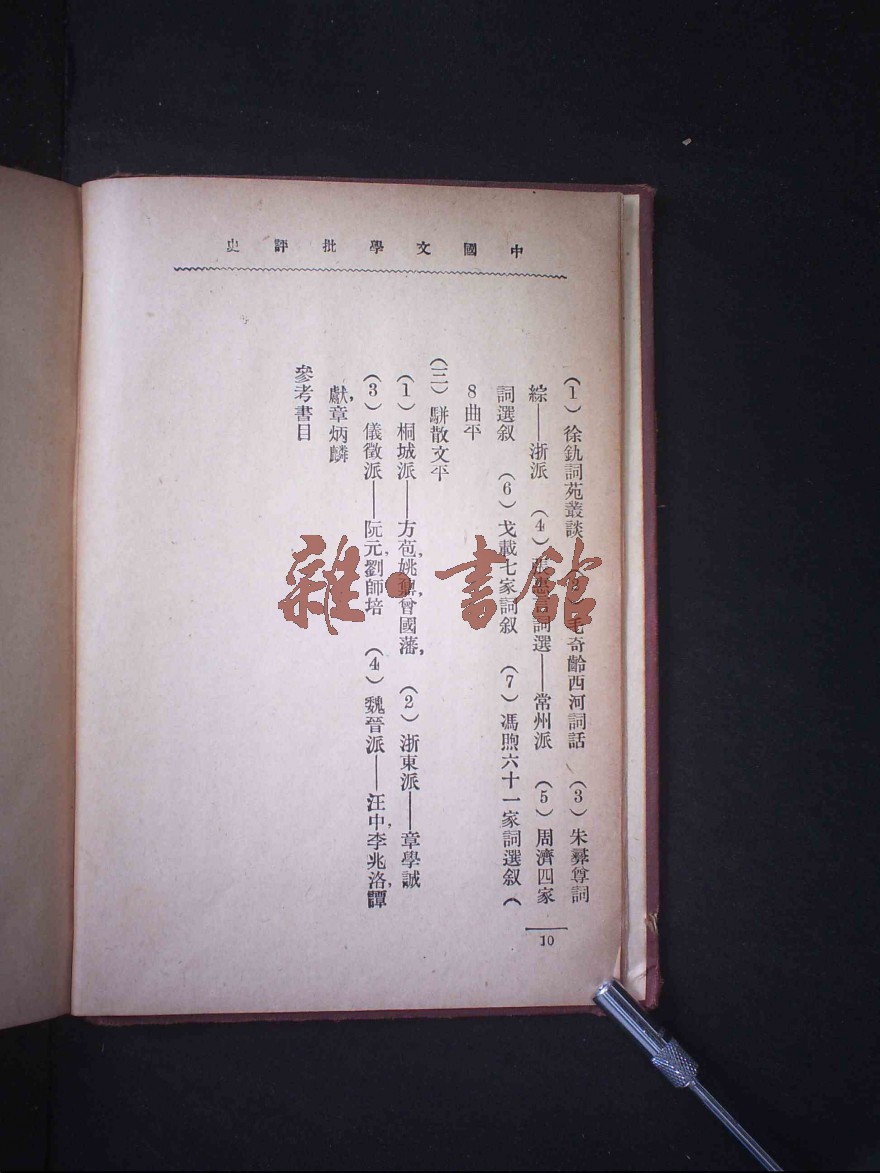 中國文學批評史
(1)徐釚詞苑叢談 (2)毛奇齡西河詞話 (3)朱彝尊詞
綜——浙派 (4)張惠言詞選——常州派 (5)周濟四家
詞選叙 (6)戈載七家詞叙 (7)馮煦六十一家詞選叙(
8曲平
(三)駢散文平
(1)桐城派——方苞,姚鼐,曾國藩, (2)浙東派——章學誠
(3)儀徵派——阮元,劉師培 (4)魏晉派——汪中,李兆洛,譚
獻,章炳麟
參考書目
10
雜·書館